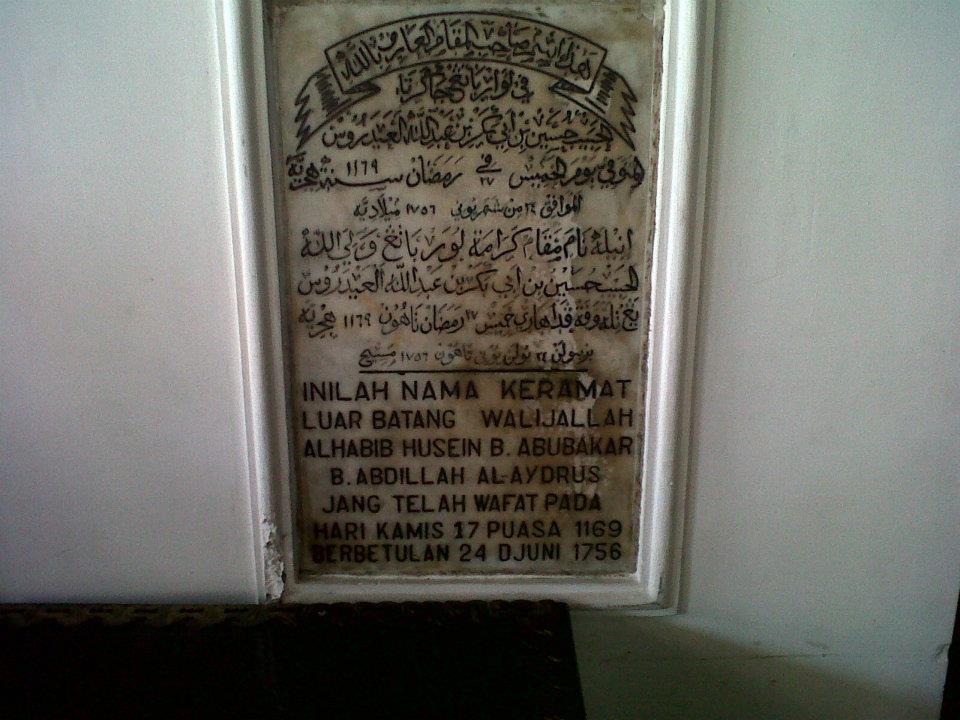 هذا انه صاحب المقام العارف بالله
في لوار باتڠ جاكرتا
الحبيب حسين بن أبي بكر بن عبد الله العيدروس
المتوفي يوم الخميس في ٢٧ رمضان سنة ١١٦٩ هجرية
الموافق ٢٤ من شهر يوني ١٧٥٦ ميلادية
انيله نام مقام كرامة لور باتڠ وَلي الله
الحبيب حسين بن أبي بكر بن عبد الله العيدروس
يڠ تله وفة قد هاري خميس ١٧ رمضان تاهون ١١٦٩ هجرية
برتولن ٢٤ بولن يوني تاهون ١٧٥٦ مسيحي
INILAH NAMA KERAMAT
LUAR BATANG WALIJALLAH
ALHABIB HUSEIN B. ABUBAKAR
B. ABDILLAH AL-AYDRUS
JANG TELAH WAFAT PADA
HARI KAMIS 17 PUASA 1169
BERBETULAN 24 DJUNI 1756